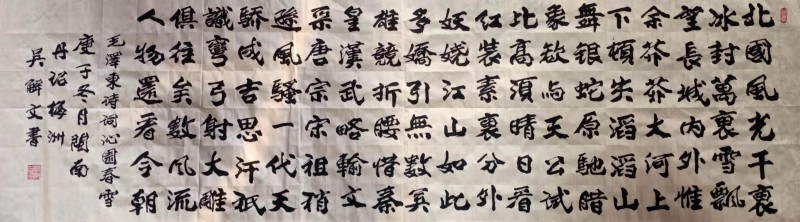 北國風光千裏
冰封萬裏雪飄
望長城内外惟
余莽莽大河上
下頓失滔滔山
舞银蛇原馳腊
象欲与天公試
比高須晴日看
红裝素裹分外
妖娆江山如此
多嬌引無數英
雄競折腰惜秦
皇漢武略輸文
采唐宗宋祖稍
遜風騷一代天
驕成吉思汗祇
識彎弓射大雕
俱往矣數風流
人物還看今朝
毛澤東诗詞沁園春雪
庚子冬月閩南
丹诏梅洲
吴解文書